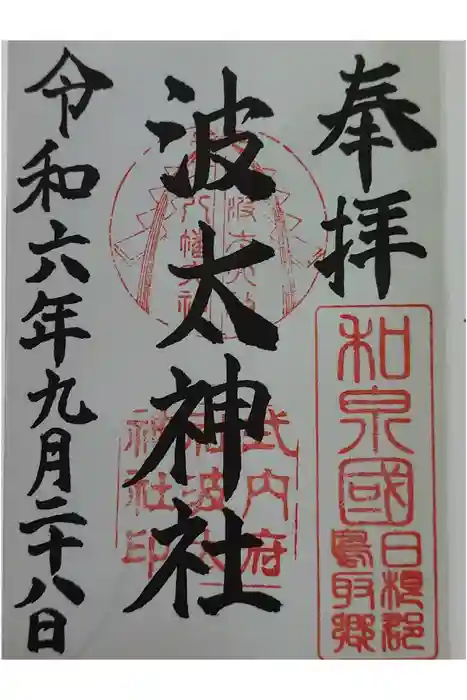 奉拝
和泉國
日根郡
鳥取郷
波太神社
式内府
社波太
神社印
令和六年九月二十八日